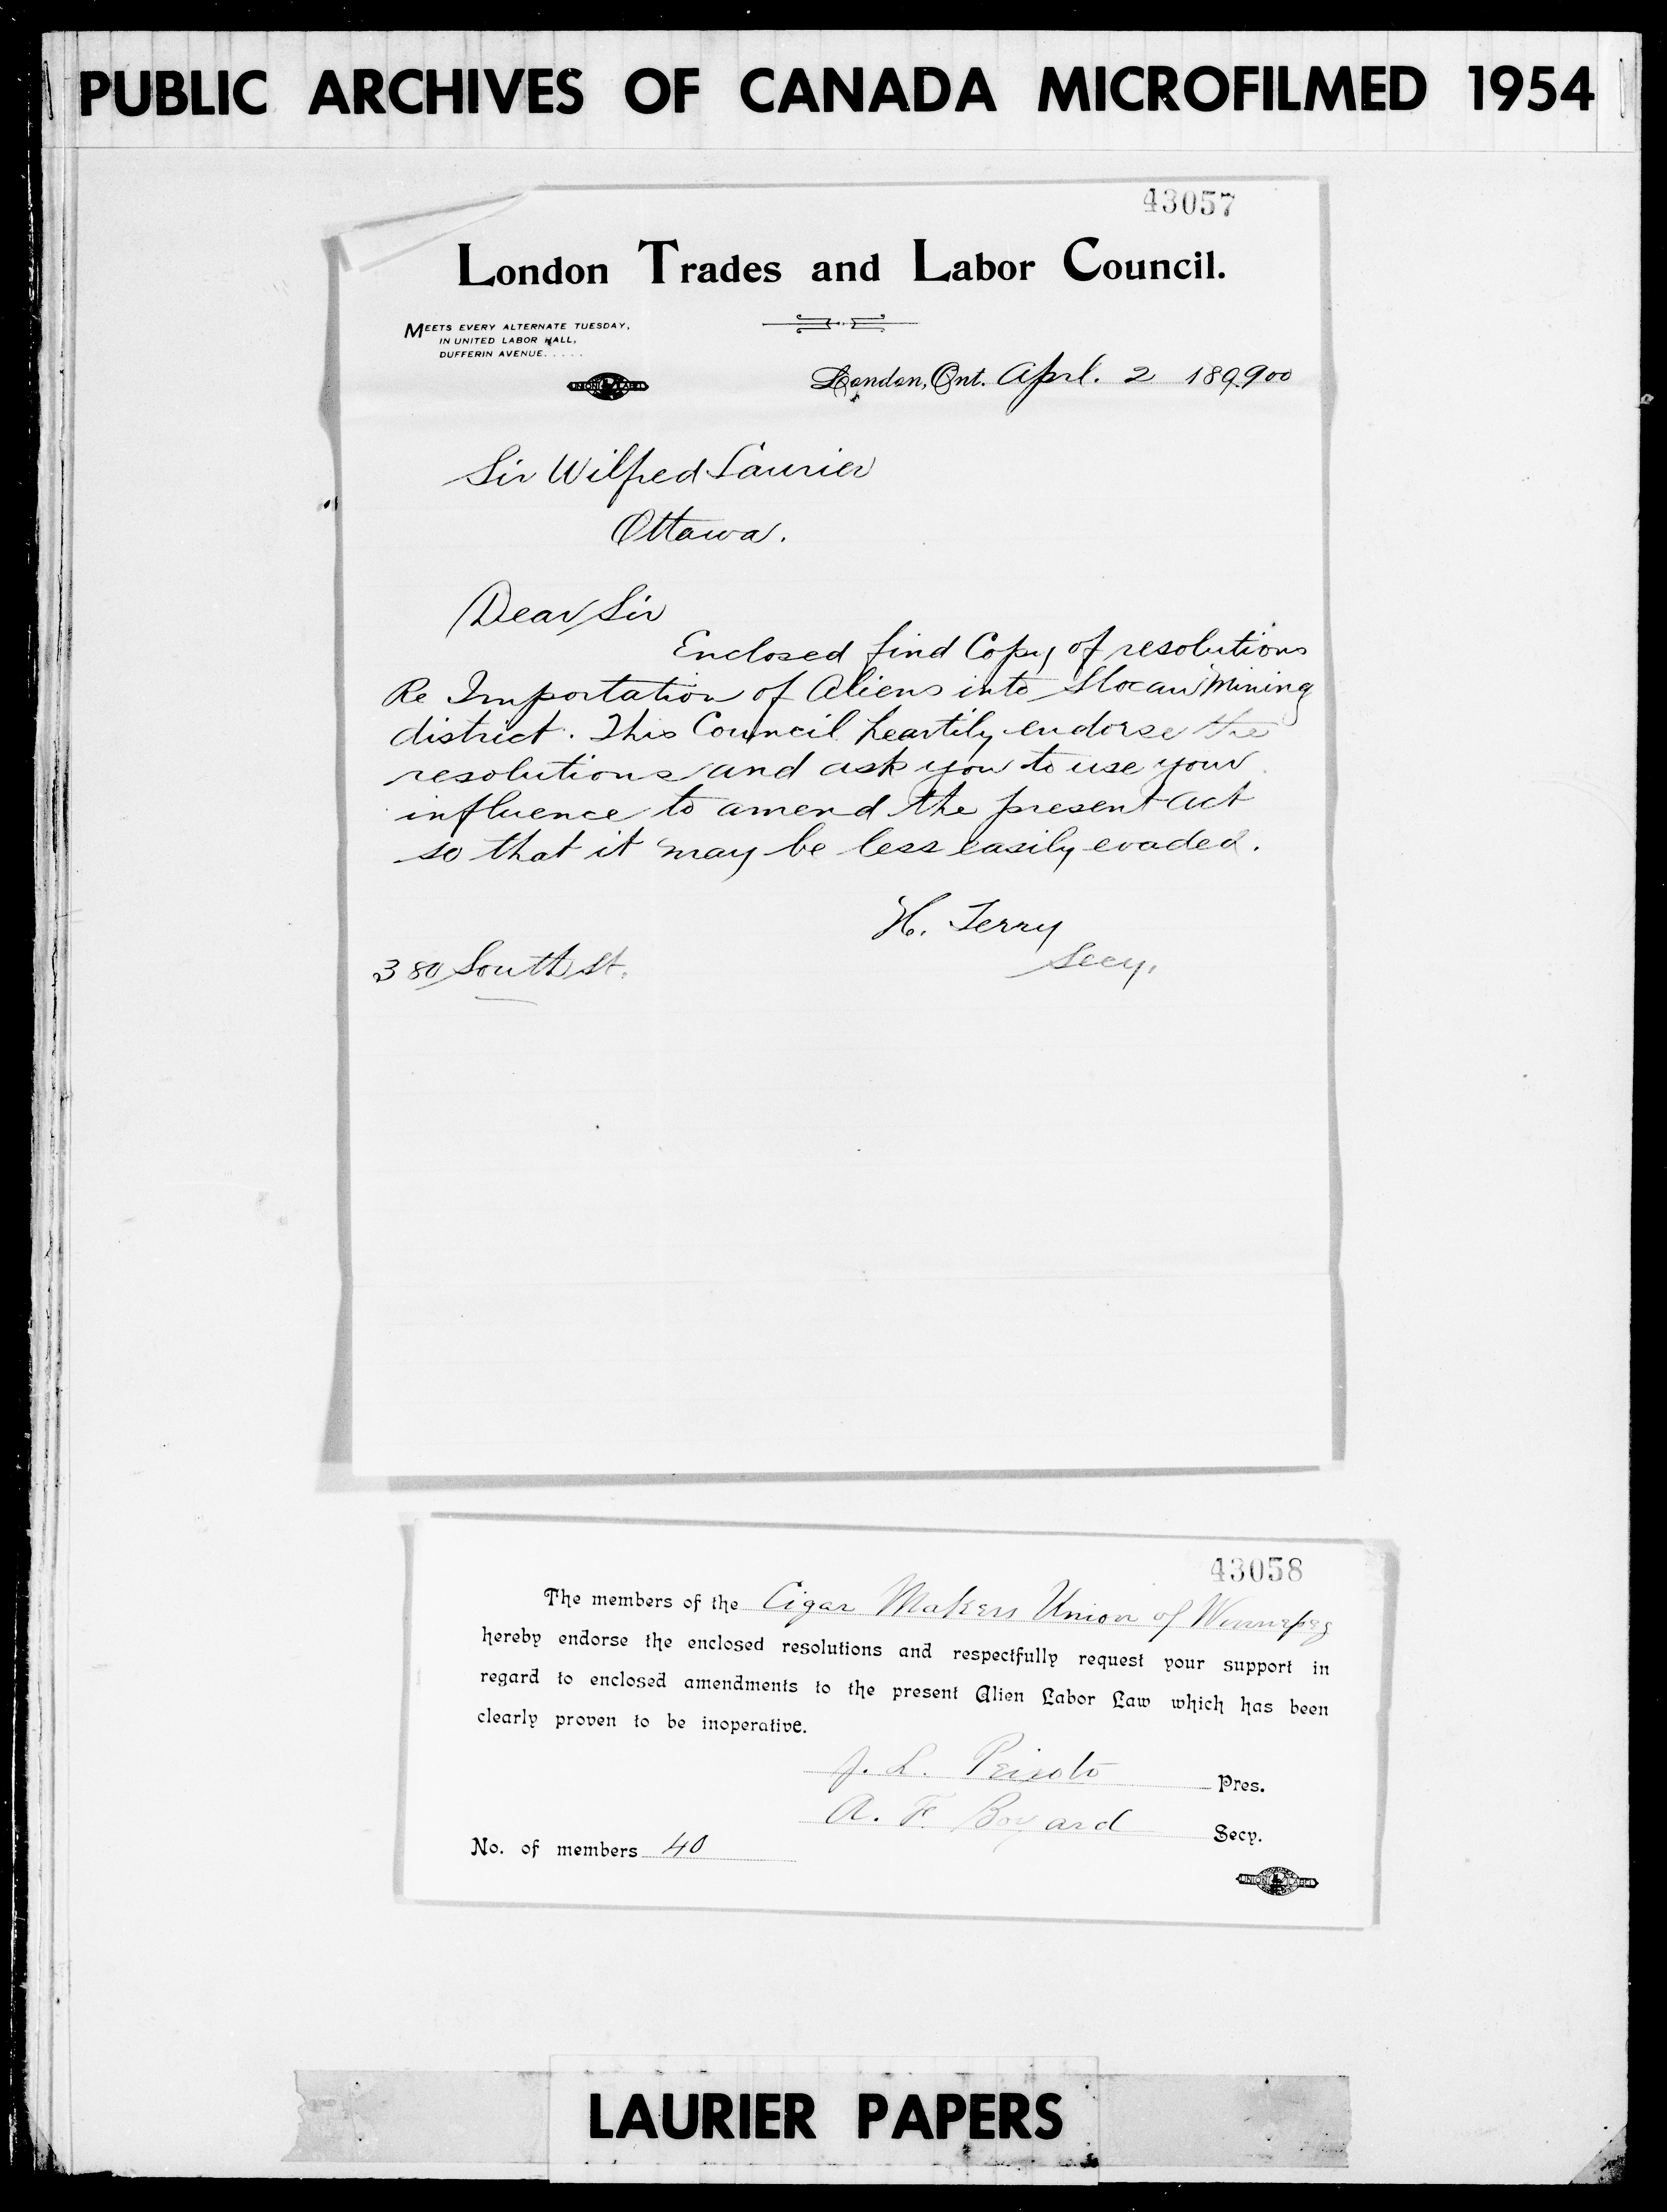 PUBLIC ARCHIVES OF CANADA MICROFILMED 1954
43057
London Trades and Labor Council.
MEETS EVERY ALTERNATE TUESDAY,
IN UNITED LABOR HALL,
DUFFERIN AVENUE.....
UNION LABEL
London, Ont. Aprl. 2 189,900
Sir Wilfred Laurier
Ottawa.
Dear Sir
Enclosed find Copy of resolutions
Re Importation of Aliens into Slocan Mining
district. This Council heartily endorse the
resolutions and ask you to use your
influence to amend the present Act
so that it may be less easily evaded.
H. Terry
Secy.
380 South St.
43058
The members of the Cigar Makers Union of Winnepeg
hereby endorse the enclosed resolutions and respectfully request your support in
regard to enclosed amendments to the present Alien Labor Law which has been
clearly proven to be inoperative.
J. L. Peixoto Pres.
A. F. Boyard Secy.
No. of members 40
UNION LABEL
LAURIER PAPERS